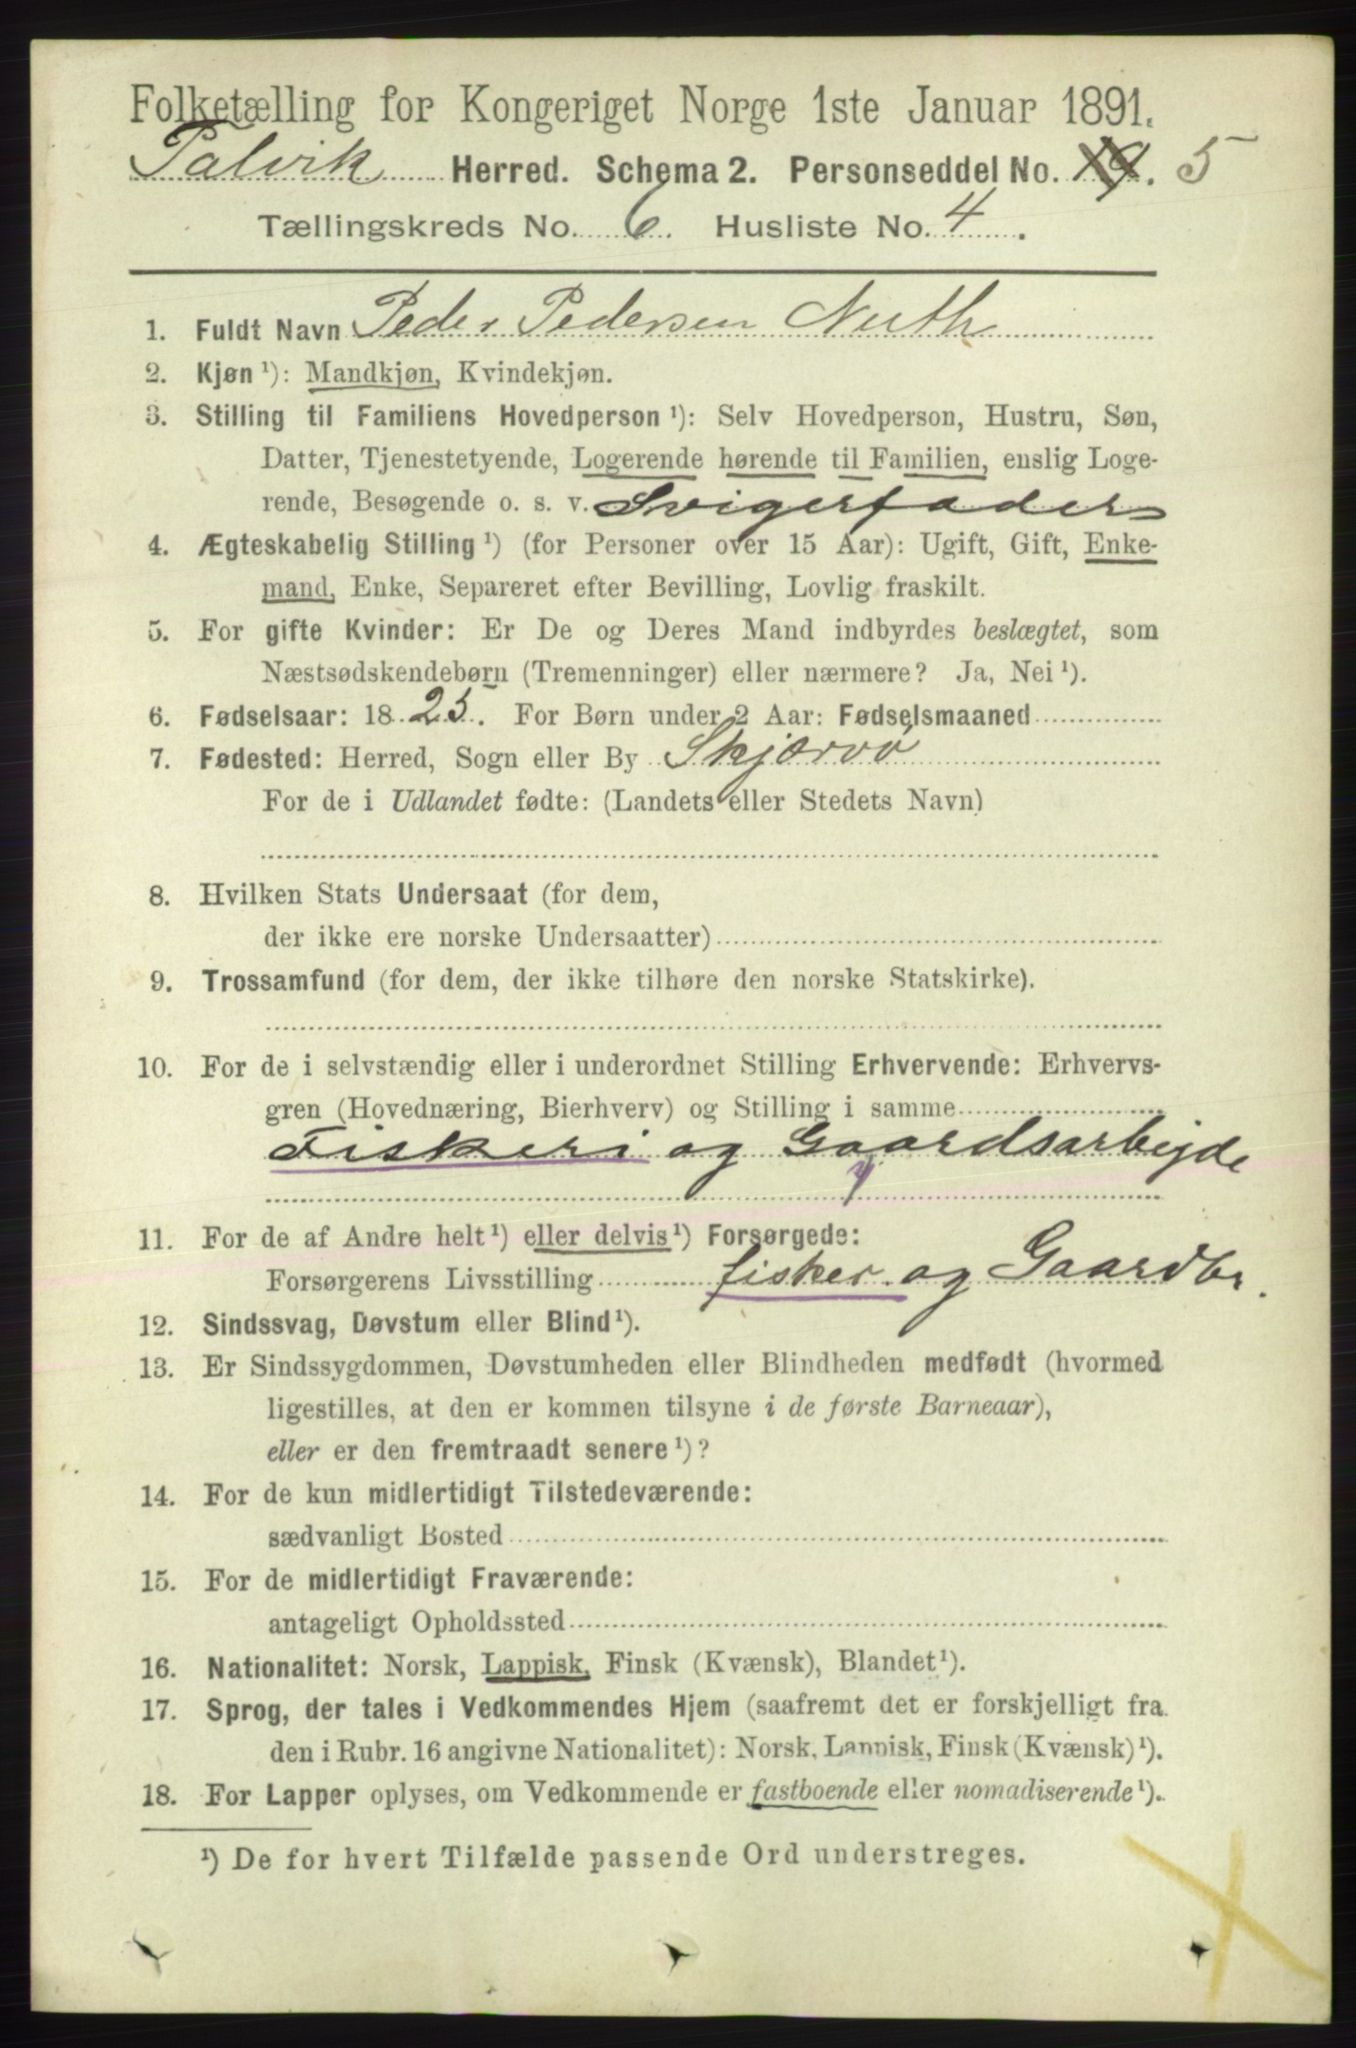 Folketælling for Kongeriget Norge 1ste Januar 1891.
Talvik Herred. Schema 2. Personseddel No. 19. 5
Tællingskreds No. 6. Husliste No. 4.
1. Fuldt Navn Peder Pedersen Nuth
2. Kjøn ¹): Mandkjøn, Kvindekjøn.
3. Stilling til Familiens Hovedperson ¹): Selv Hovedperson, Hustru, Søn,
Datter, Tjenestetyende, Logerende hørende til Familien, enslig Loge-
rende, Besøgende o. s. v. Svigerfader
4. Ægteskabelig Stilling ¹) (for Personer over 15 Aar): Ugift, Gift, Enke-
mand, Enke, Separeret efter Bevilling, Lovlig fraskilt.
5. For gifte Kvinder: Er De og Deres Mand indbyrdes beslægtet, som
Næstsødskendebørn (Tremenninger) eller nærmere? Ja, Nei ¹).
6. Fødselsaar: 1825. For Børn under 2 Aar: Fødselsmaaned
7. Fødested: Herred, Sogn eller By Skjærvø
For de i Udlandet fødte: (Landets eller Stedets Navn)
8. Hvilken Stats Undersaat (for dem,
der ikke ere norske Undersaatter)
9. Trossamfund (for dem, der ikke tilhøre den norske Statskirke).
10. For de i selvstændig eller i underordnet Stilling Erhvervende: Erhvervs-
gren (Hovednæring, Bierhverv) og Stilling i samme
Fiskeri og Gaardsarbejde
11. For de af Andre helt ¹) eller delvis ¹) Forsørgede:
Forsørgerens Livsstilling fisker og Gaardbr.
12. Sindssvag, Døvstum eller Blind ¹).
13. Er Sindssygdommen, Døvstumheden eller Blindheden medfødt (hvormed
ligestilles, at den er kommen tilsyne i de første Barneaar),
eller er den fremtraadt senere ¹)?
14. For de kun midlertidigt Tilstedeværende:
sædvanligt Bosted
15. For de midlertidigt Fraværende:
antageligt Opholdssted
16. Nationalitet: Norsk, Lappisk, Finsk (Kvænsk), Blandet ¹).
17. Sprog, der tales i Vedkommendes Hjem (saafremt det er forskjelligt fra
den i Rubr. 16 angivne Nationalitet): Norsk, Lappisk, Finsk (Kvænsk) ¹).
18. For Lapper oplyses, om Vedkommende er fastboende eller nomadiserende ¹).
¹) De for hvert Tilfælde passende Ord understreges.